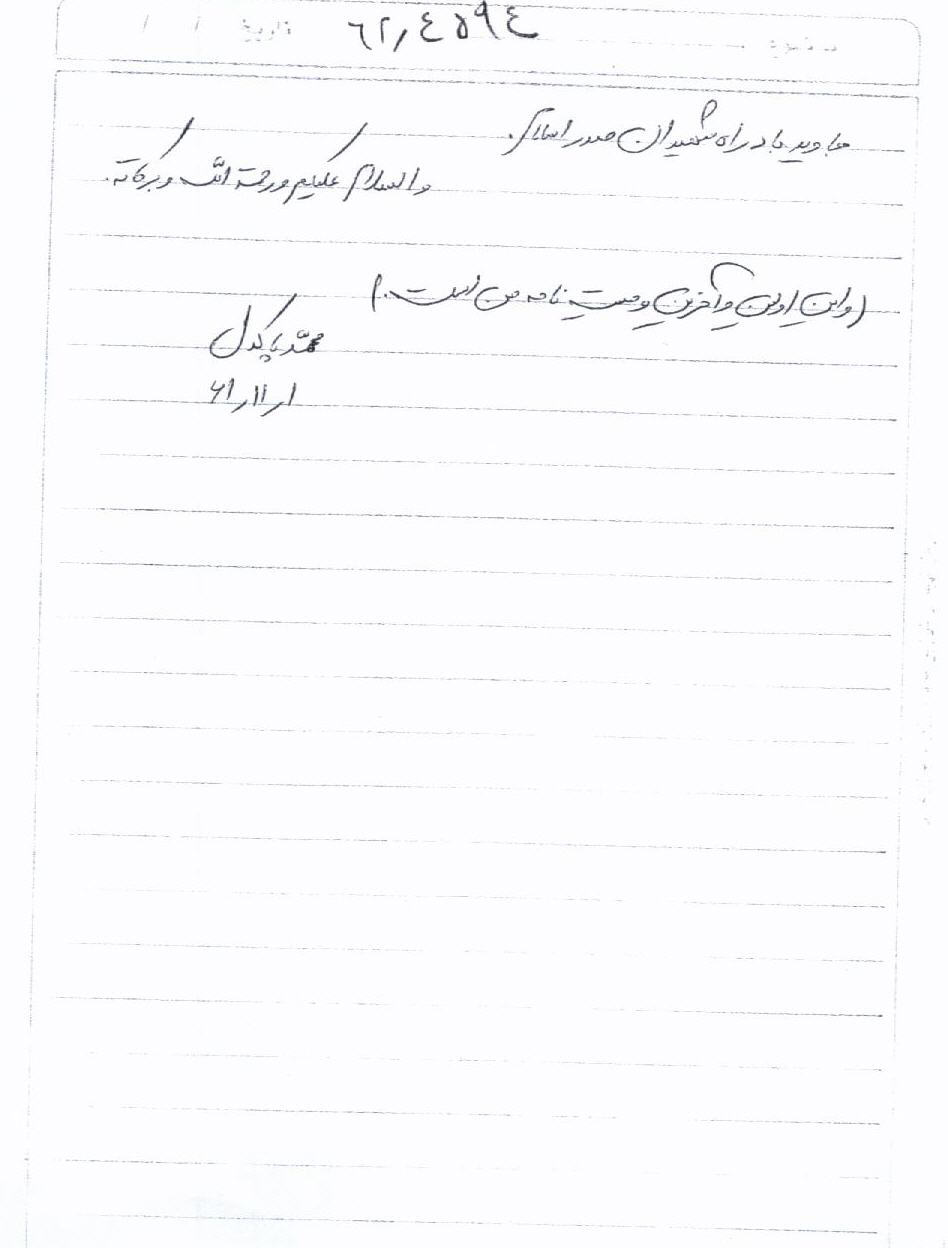 تاریخ / / ٦٢,٤٥٩٤
جاوید باد راه شهیدان صدر اسلام.
والسلام علیکم ورحمة الله وبرکاته.
(و این اولین و آخرین وصیت نامه من است.)
محمد پاکدل
۶۱/۱۱/۱